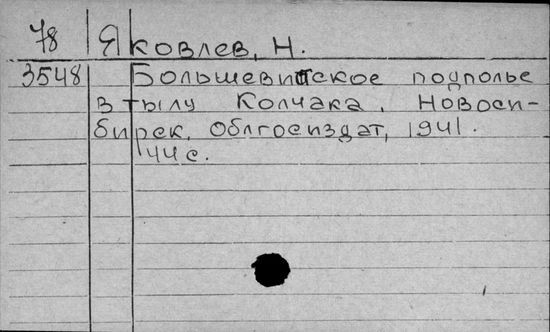 78 Яковлев, Н.
3548 Большевитское подполье
в тылу Колчака. Новоси-
бирск, Облгосиздат, 1941.
44 с.